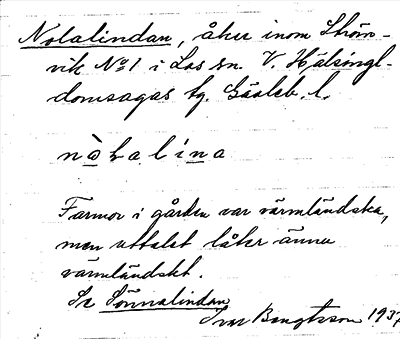 Nolalindan, åker inom Ström-
vik No 1 i Los sn. V. Hälsingl.
domsagas tg. Gävleb. l.
nòlalina
Farmor i gården var värmländska,
men uttalet låter ännu
värmländskt.
Se Sönnalindan
Bengtsson 1937